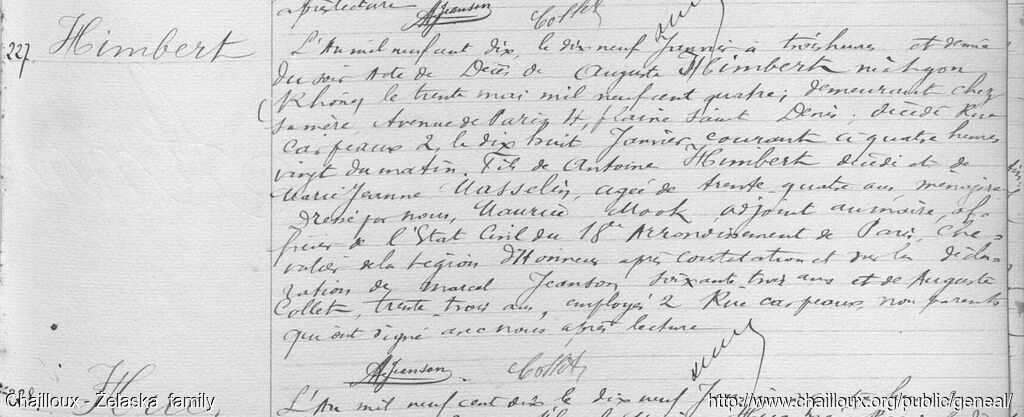 après lecture Jeanson Collet
227. Himbert
L'An mil neuf cent dix, le dix neuf Janvier à trois heures et demie
du soir Acte de Décès de Auguste Himbert né à Lyon
Rhône, le trente mai mil neuf cent quatre; demeurant chez
sa mère, Avenue de Paris 4, plaine Saint Denis; décédé Rue
Carpeaux 2, le dix huit Janvier courant à quatre heures
vingt du matin. Fils de Antoine Himbert décédé et de
Marie Jeanne Masselin, agée de trente-quatre ans ménagère
dressé par nous, Maurice Mook, adjoint au maire, of-
ficier de l'Etat Civil du 18e Arrondissement de Paris, Che-
valier de la Légion d'Honneur après constatation et sur la décla-
ration de Marcel Jeanson, soixante trois ans et de Auguste
Collet, trente-trois ans, employés 2 Rue Carpeaux, non parents
qui ont signé avec nous après lecture
Jeanson Collet
228 Huc
L'An mil neuf cent dix le dix neuf
Chailloux - Zelaska family
http://www.chailloux.org/public/geneal/